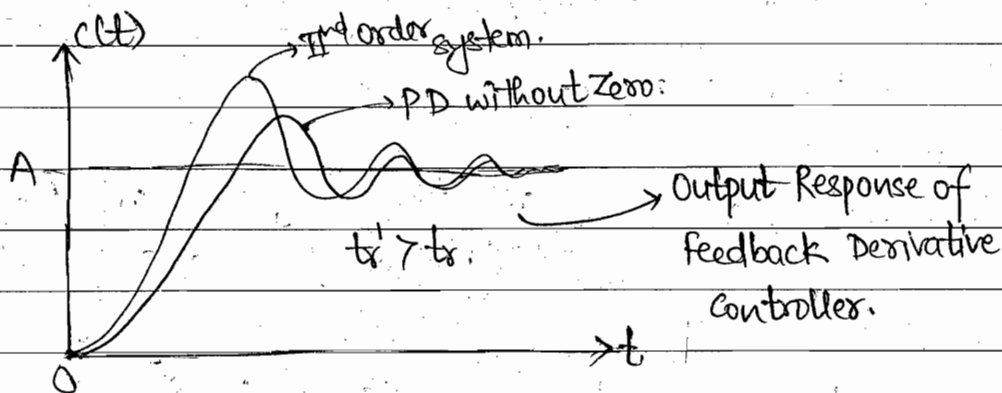 C(t)
IInd order system.
PD without Zero:
A
Output Response of
Feedback Derivative
Controller.
tr' > tr.
t
0